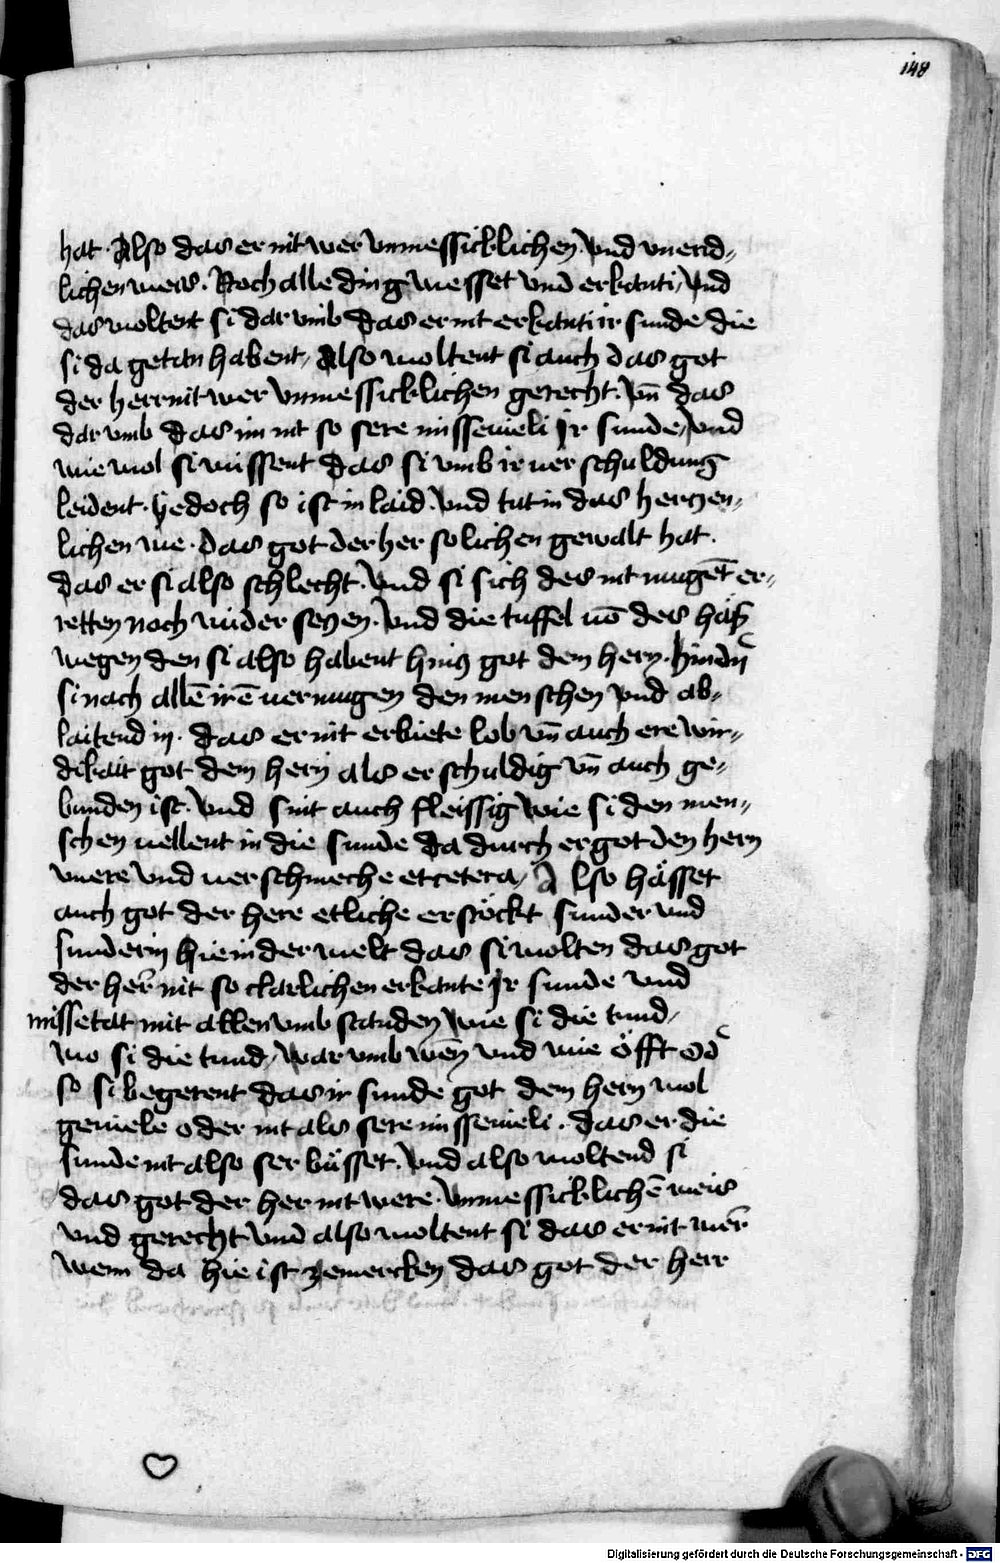 148
hat. Also das er nit wer vnmessicklichen vnd vnend-
lichen weis. Noch alle ding wesset vnd erkanti, vnd
das woltent si dar vmb das er nit erkanti ir sunde die
si da getan habent, Also woltent si auch das got
der herr nit wer vnmessicklichen gerecht. vn̄ das
dar vmb das im nit so sere missevieli Jr sunde, vnd
wie wol si wissent das si vmb ir verschuldung
leident. yedoch so ist in laid. vnd tut in das herczen-
lichen we. das got der her solichen gewalt hat.
das er si also schlecht. vnd si sich des nit mugēt er-
retten noch wider seczen. vnd die tuffel vō des haß
wegen den si also habent hincz got dem hern. hindn̄
si nach allē irē vermugen den menschen vnd ab-
laitend in. das er nit erbiete lob vn̄ auch erewir-
dikait got dem hern als er schuldig vn̄ auch ge-
bunden ist. vnd sint auch fleissig wie si den men-
schen vellent in die sunde da durch er got den hern
vnere vnd verschmeche etcetera, Also hässet
auch got der here etliche erstöckt sunder vnd
sunderin hie in der welt das si wolten das got
der her nit so clarlichen erkante Jr sunde vnd
missetat mit allen vmbstanden wie si die tund,
wo si die tund, war vmb wen vnd wie öfft Od
so si begerent das ir sunde got dem hern wol
geviele oder nit als sere missevieli. das er die
sunde nit also ser büsset. vnd also woltend si
das got der her nit were. vnmessicklichē weis
vnd gerecht vnd also woltent si das er nit wer
wenn da hie ist zemercken das got der herr
Digitalisierung gefördert durch die Deutsche Forschungsgemeinschaft - DFG